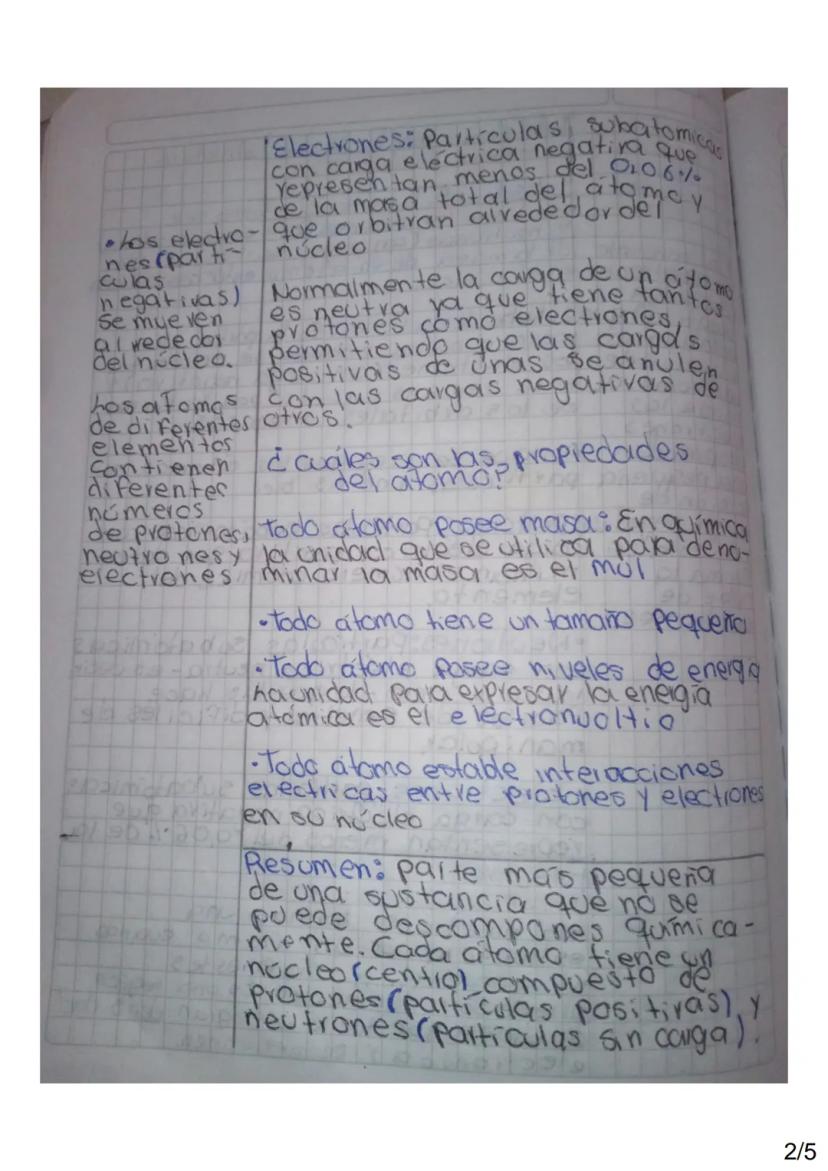 Electrones: Partículas subatomicas
con carga eléctrica negativa que
representan menos del 0,06%
de la masa total del átomo y
que orbitran alrededor del
núcleo
Normalmente la carga de un átomo
es neutra ya que tiene tantos
protones como electrones,
permitiendo que las cargas
positivas de unas se anulen
con las cargas negativas de
otros.
¿cuáles son las propiedades
del atomo?
Todo átomo posee masa: En química
la unidad que se utiliza para deno-
minar la masa es el mul
•Todo átomo tiene un tamaño pequeño
•Todo átomo posee niveles de energia
ha unidad para expresar la energía
atómica es el electronvoltio
•Todo átomo estable interacciones
electricas entre protones y electrones
en su núcleo
• Los electro-
nes (partí-
culas
negativas)
se mueven
alrededor
del núcleo.
Los atomos
de diferentes
elementos
contienen
diferentes
números
de protones,
neutrones y
electrones
Resumen: parte más pequeña
de una sustancia que no se
puede descompones química-
mente. Cada átomo tiene un
núcleo (centro) compuesto de
protones (partículas positivas) y
neutrones (partículas sin carga).
2/5